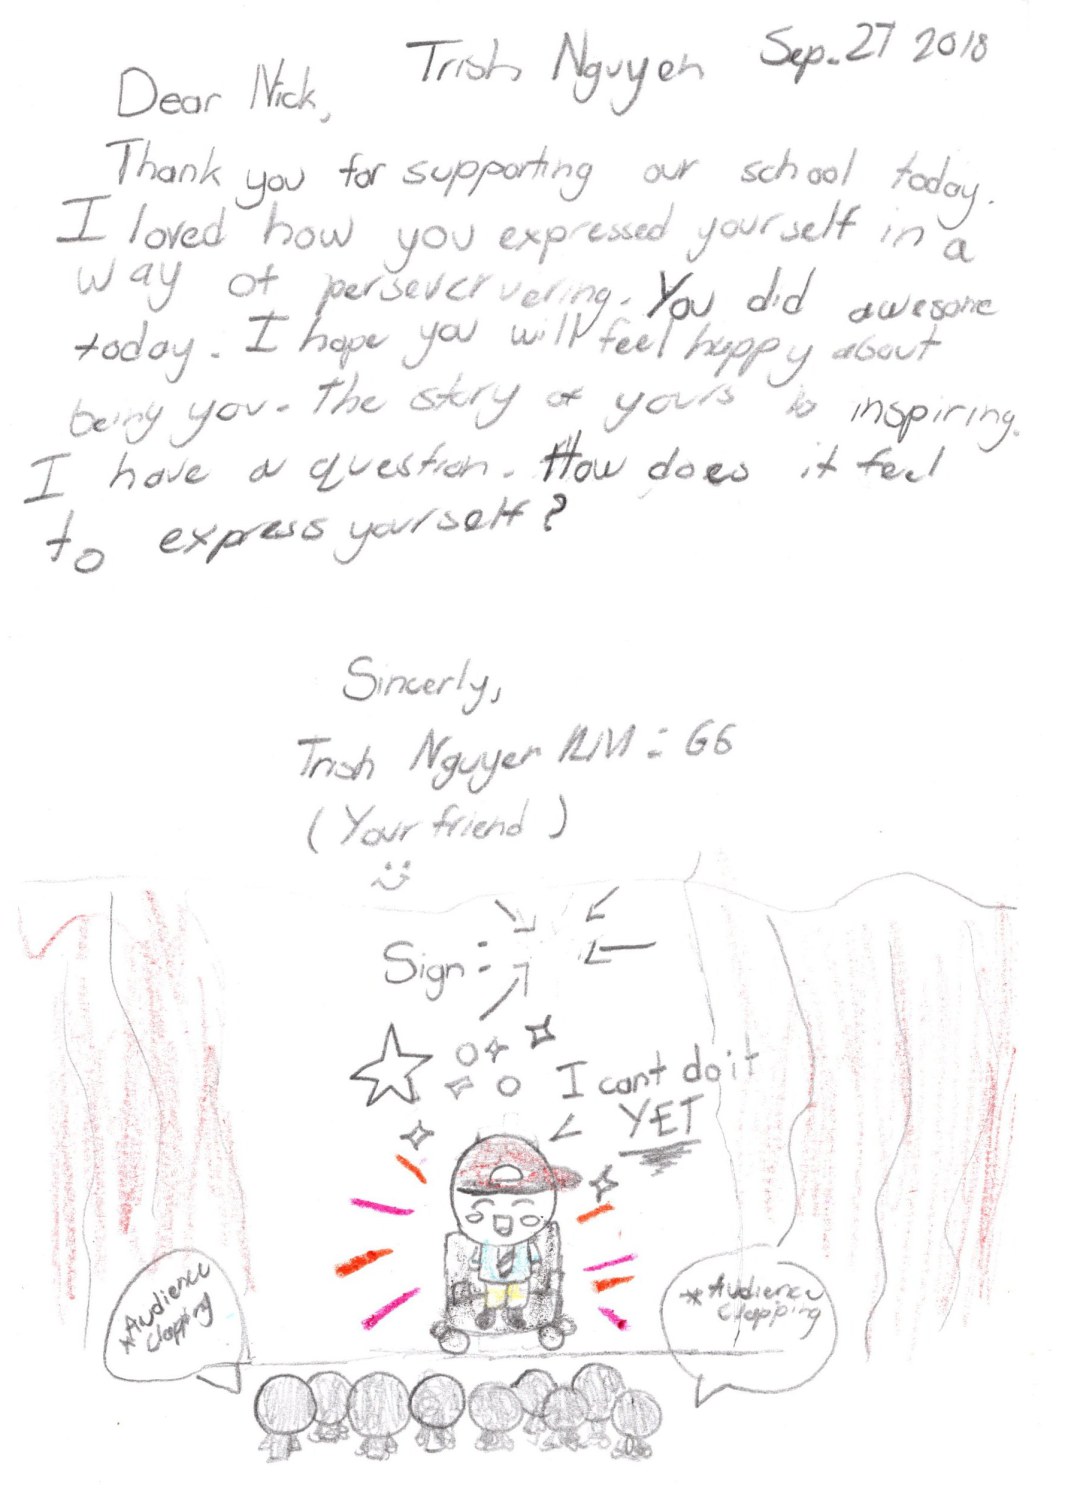 Trish Nguyen Sep. 27 2018
Dear Nick,
Thank you for supporting our school today.
I loved how you expressed yourself in a
way of perseververing. You did awesome
today. I hope you will feel happy about
being you. The story of yours is inspiring.
I have a question. How does it feel
to express yourself?
Sincerly,
Trish Nguyen : G6
(Your friend)
Sign:
I cant do it
YET
*Audience
Clapping
*Audience
Clapping